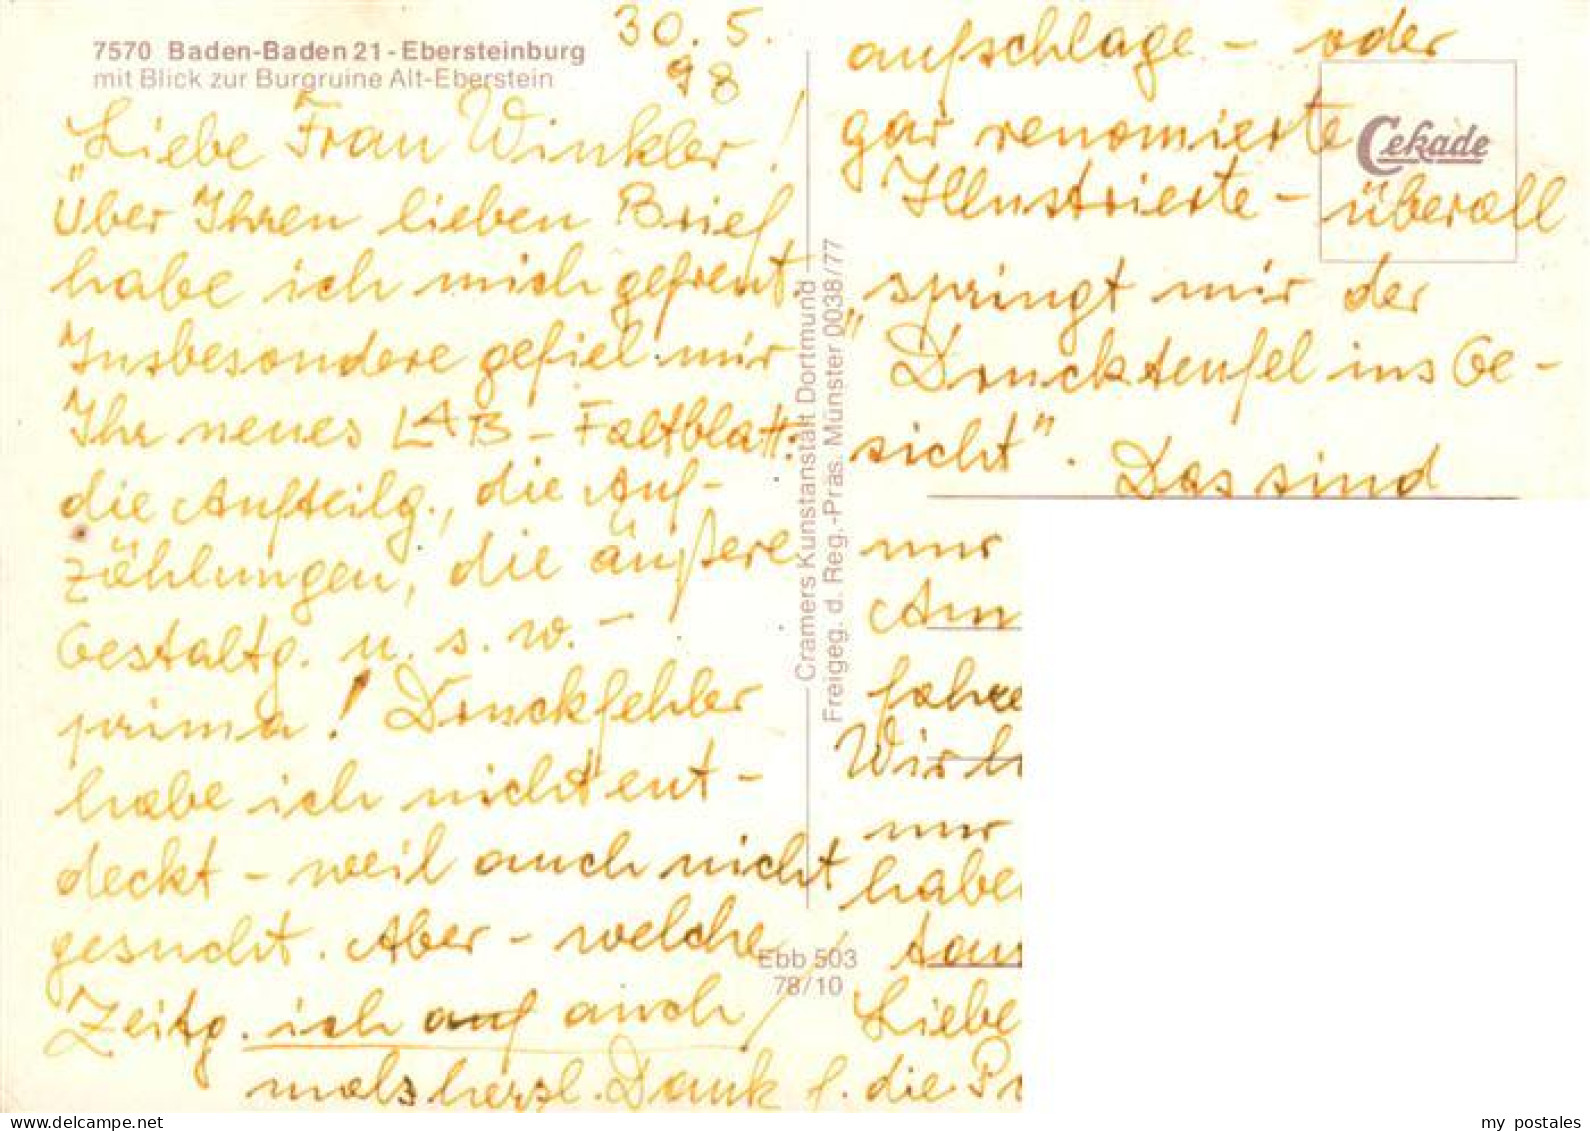 7570 Baden-Baden 21 - Ebersteinburg
mit Blick zur Burgruine Alt-Eberstein
30. 5.
98
Liebe Frau Winkler!
Über Ihren lieben Brief
habe ich mich gefreut.
Insbesondere gefiel mir
Ihr neues LAB - Faltblatt:
die Aufteilg., die Auf-
zählungen, die äußere
Gestaltg. u. s. w. -
prima! Druckfehler
habe ich nicht ent-
deckt - weil auch nicht
gesucht. Aber - welche
Zeitg. ich auf auch
mals herzl. Dank f. die Pr
Cramers Kunstanstalt Dortmund
Freigeg. d. Reg.-Präs. Münster 0038/77
Ebb 503
78/10
aufschlage - oder
gar renomierte
Illustrierte - überall
springt mir der
"Druckteufel ins Ge-
sicht". Das sind
nur
Am
fahre
Wir h
nur
habe
tau
Liebe
Cekade
my postales